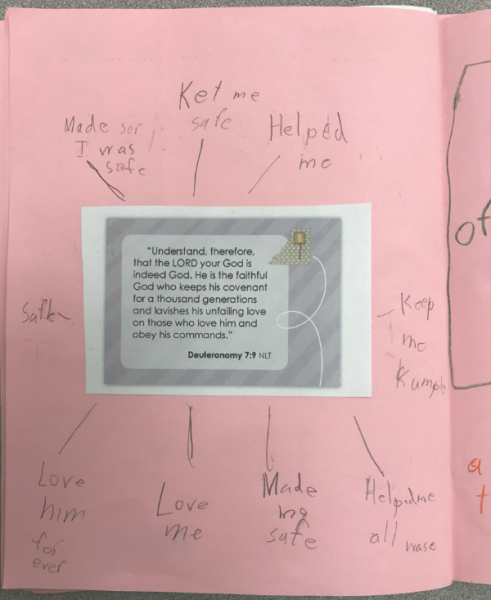 Ket me
safe
Made ser
I was
safe
Helped
me
"Understand, therefore,
that the LORD your God is
indeed God. He is the faithful
God who keeps his covenant
for a thousand generations
and lavishes his unfailing love
on those who love him and
obey his commands."
Deuteronomy 7:9 NLT
Keep
me
Love
him
for
ever
Love
me
Made
safe
Helpedme
all wase
of
a
t